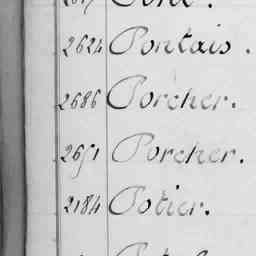 2624 Pontais.
2686 Porcher.
2651 Porcher.
2184 Potier.